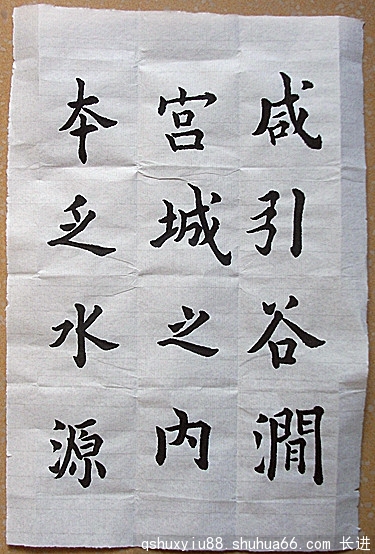 咸引谷澗
宫城之内
本乏水源
qshuxyiu88 shuhua66.com 长进